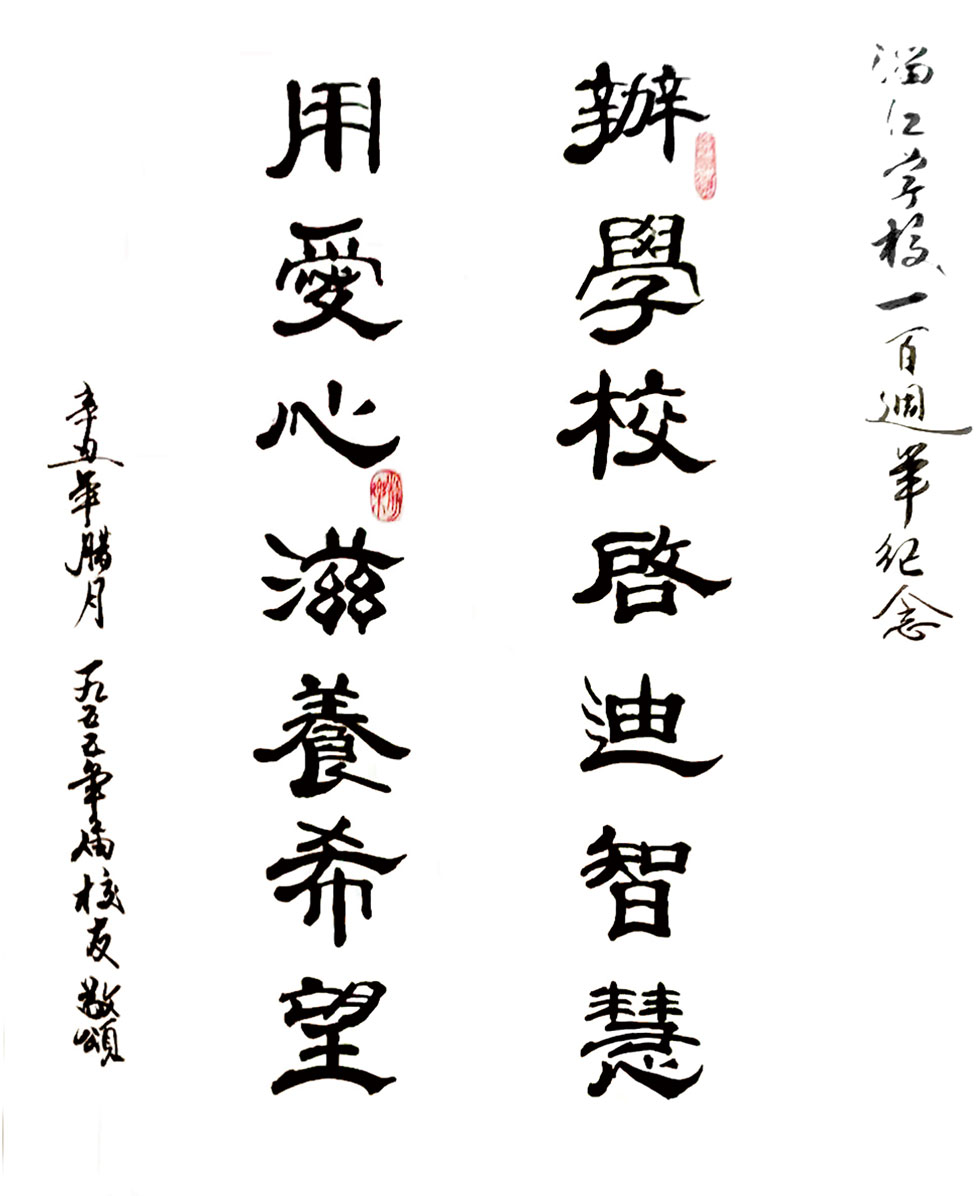 仁学校一百週年纪念
辦學校啓迪智慧
用愛心滋養希望
辛丑年腊月 一九五五年届校友敬頌